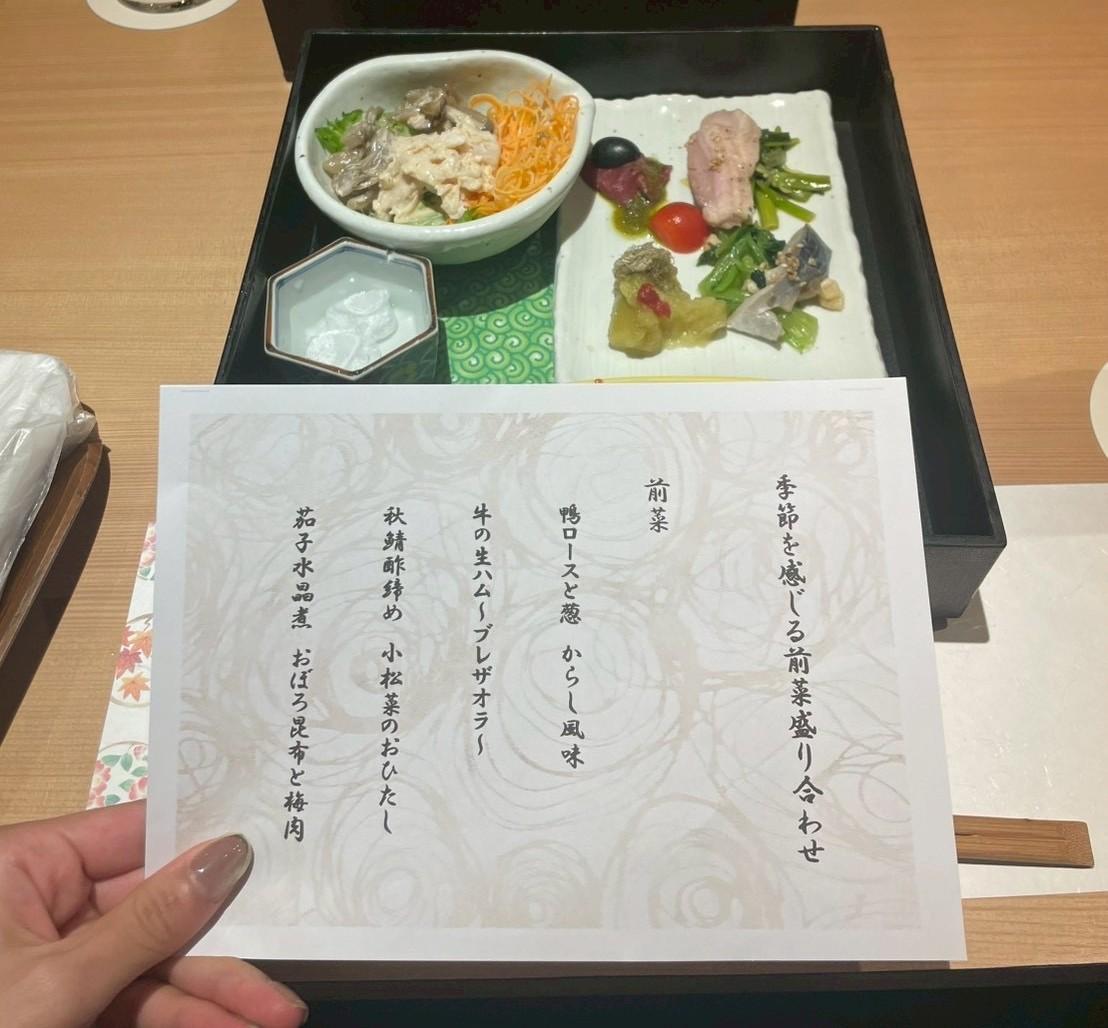 季節を感じる前菜盛り合わせ
前菜
鴨ロースと葱 からし風味
牛の生ハム～ブレザオラ～
秋鯖酢締め 小松菜のおひたし
茄子水晶煮 おぼろ昆布と梅肉